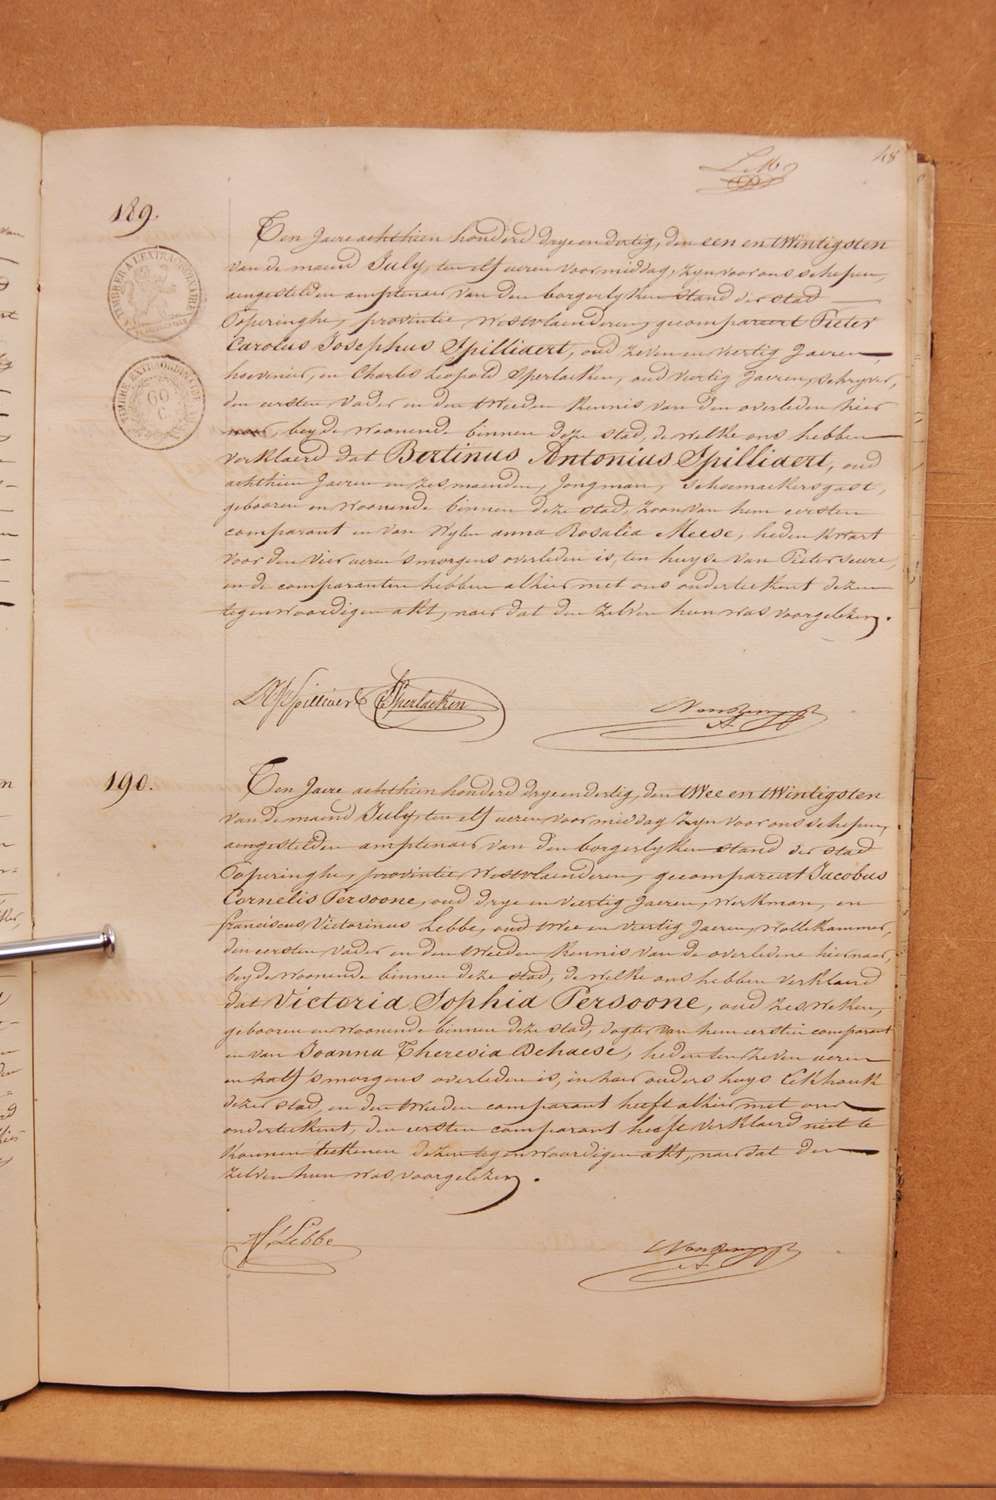 48
189.
Ten Jaere achthien honderd drye en dertig, den een en twintigsten
van de maend July, ten elf ueren voormiddag, zyn voor ons schepen,
aengestelden amptenaer van den borgerlyken stand der stad
Poperinghe, provintie Westvlaenderen, gecompareert Pieter
Carolus Josephus Spillidert, oud zeven en viertig Jaeren,
hovenier, en Charles Leopold Sperlaeken, oud viertig Jaeren, schryver,
den eersten vader en den tweeden kennis van den overleden hier
naer, beyde woonende binnen deze stad, de welke ons hebben
verklaerd dat Bertinus Antonius Spillidert, oud
achthien Jaeren en zes maenden, Jongman, Schoemaekersgast,
gebooren en woonende binnen deze stad, zoon van hem eersten
comparant en van wylen anna Rosalia Meese, heden kwart
voor den vier ueren 's morgens overleden is, ten huyse van Pieter
en de comparanten hebben alhier met ons onderteekent dezen
tegenwoordigen akt, naer dat den zelven hun was voorgelezen.
TIMBRE A L'EXTRAORDINAIRE
TIMBRE EXTRAORDINAIRE
60
C
Spilliaert Sperlaeken
190.
Ten Jaere achthien honderd drye en dertig, den twee en twintigsten
van de maend July, ten elf ueren voor middag zyn voor ons schepen,
aengestelden amptenaer van den borgerlyken stand der stad
Poperinghe, provintie Westvlaenderen, gecompareert Jacobus
Cornelis Persoone, oud drye en viertig Jaeren, werkman, en
franciscus Victorinus Lebbe, oud twee en viertig Jaeren, wollekammer,
den eersten vader en den tweeden kennis van de overledene hiernaer,
beyde woonende binnen deze stad, de welke ons hebben verklaerd
dat Victoria Sophia Persoone, oud zes weken,
gebooren en woonende binnen deze stad, dogter van hem eersten comparant
en van Joanna Theresia Dehaese, heden ten zeven ueren
en half 's morgens overleden is, in haer ouders huys Eekhouk
dezer stad, en den tweeden comparant heeft alhier met ons
onderteekent, den eersten comparant heeft verklaerd niet te
konnen teekenen dezen tegenwoordigen akt, naer dat den
zelven hun was voorgelezen.
Lebbe